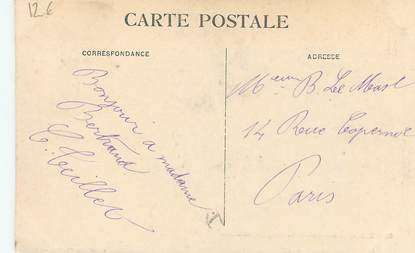 12 €
CARTE POSTALE
CORRESPONDANCE
ADRESSE
Bonjour a madame
Bertrand
C. Teillet
B. Le Mast
14 Rue
Paris